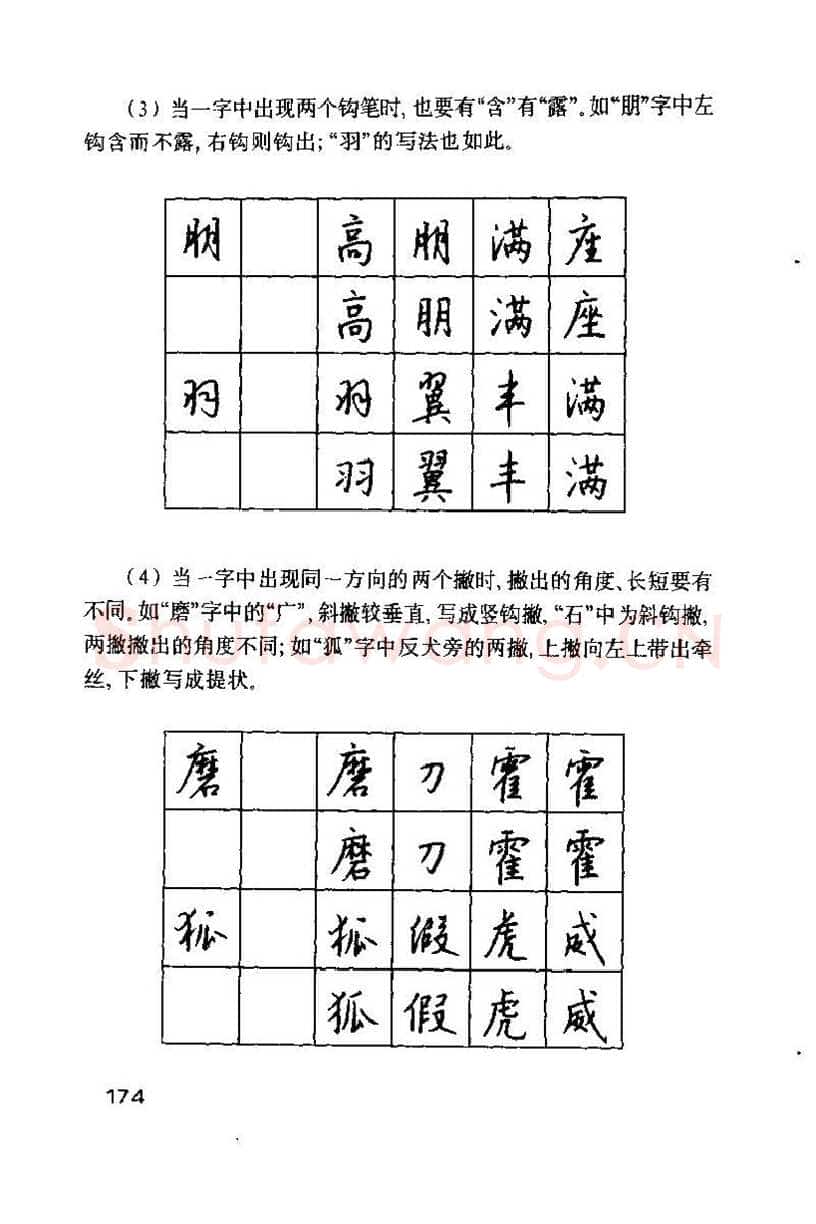 (3) 当一字中出现两个钩笔时，也要有“含”有“露”。如“朋”字中左
钩含而不露，右钩则钩出；“羽”的写法也如此。
朋 高 朋 满 座
高 朋 满 座
羽 羽 翼 丰 满
羽 翼 丰 满
(4) 当一字中出现同一方向的两个撇时，撇出的角度、长短要有
不同。如“磨”字中的“广”，斜撇较垂直，写成竖钩撇，“石”中为斜钩撇，
两撇撇出的角度不同；如“狐”字中反犬旁的两撇，上撇向左上带出牵
丝，下撇写成提状。
shufawang.CN
磨 磨 刀 霍 霍
磨 刀 霍 霍
狐 狐 假 虎 威
狐 假 虎 威
174